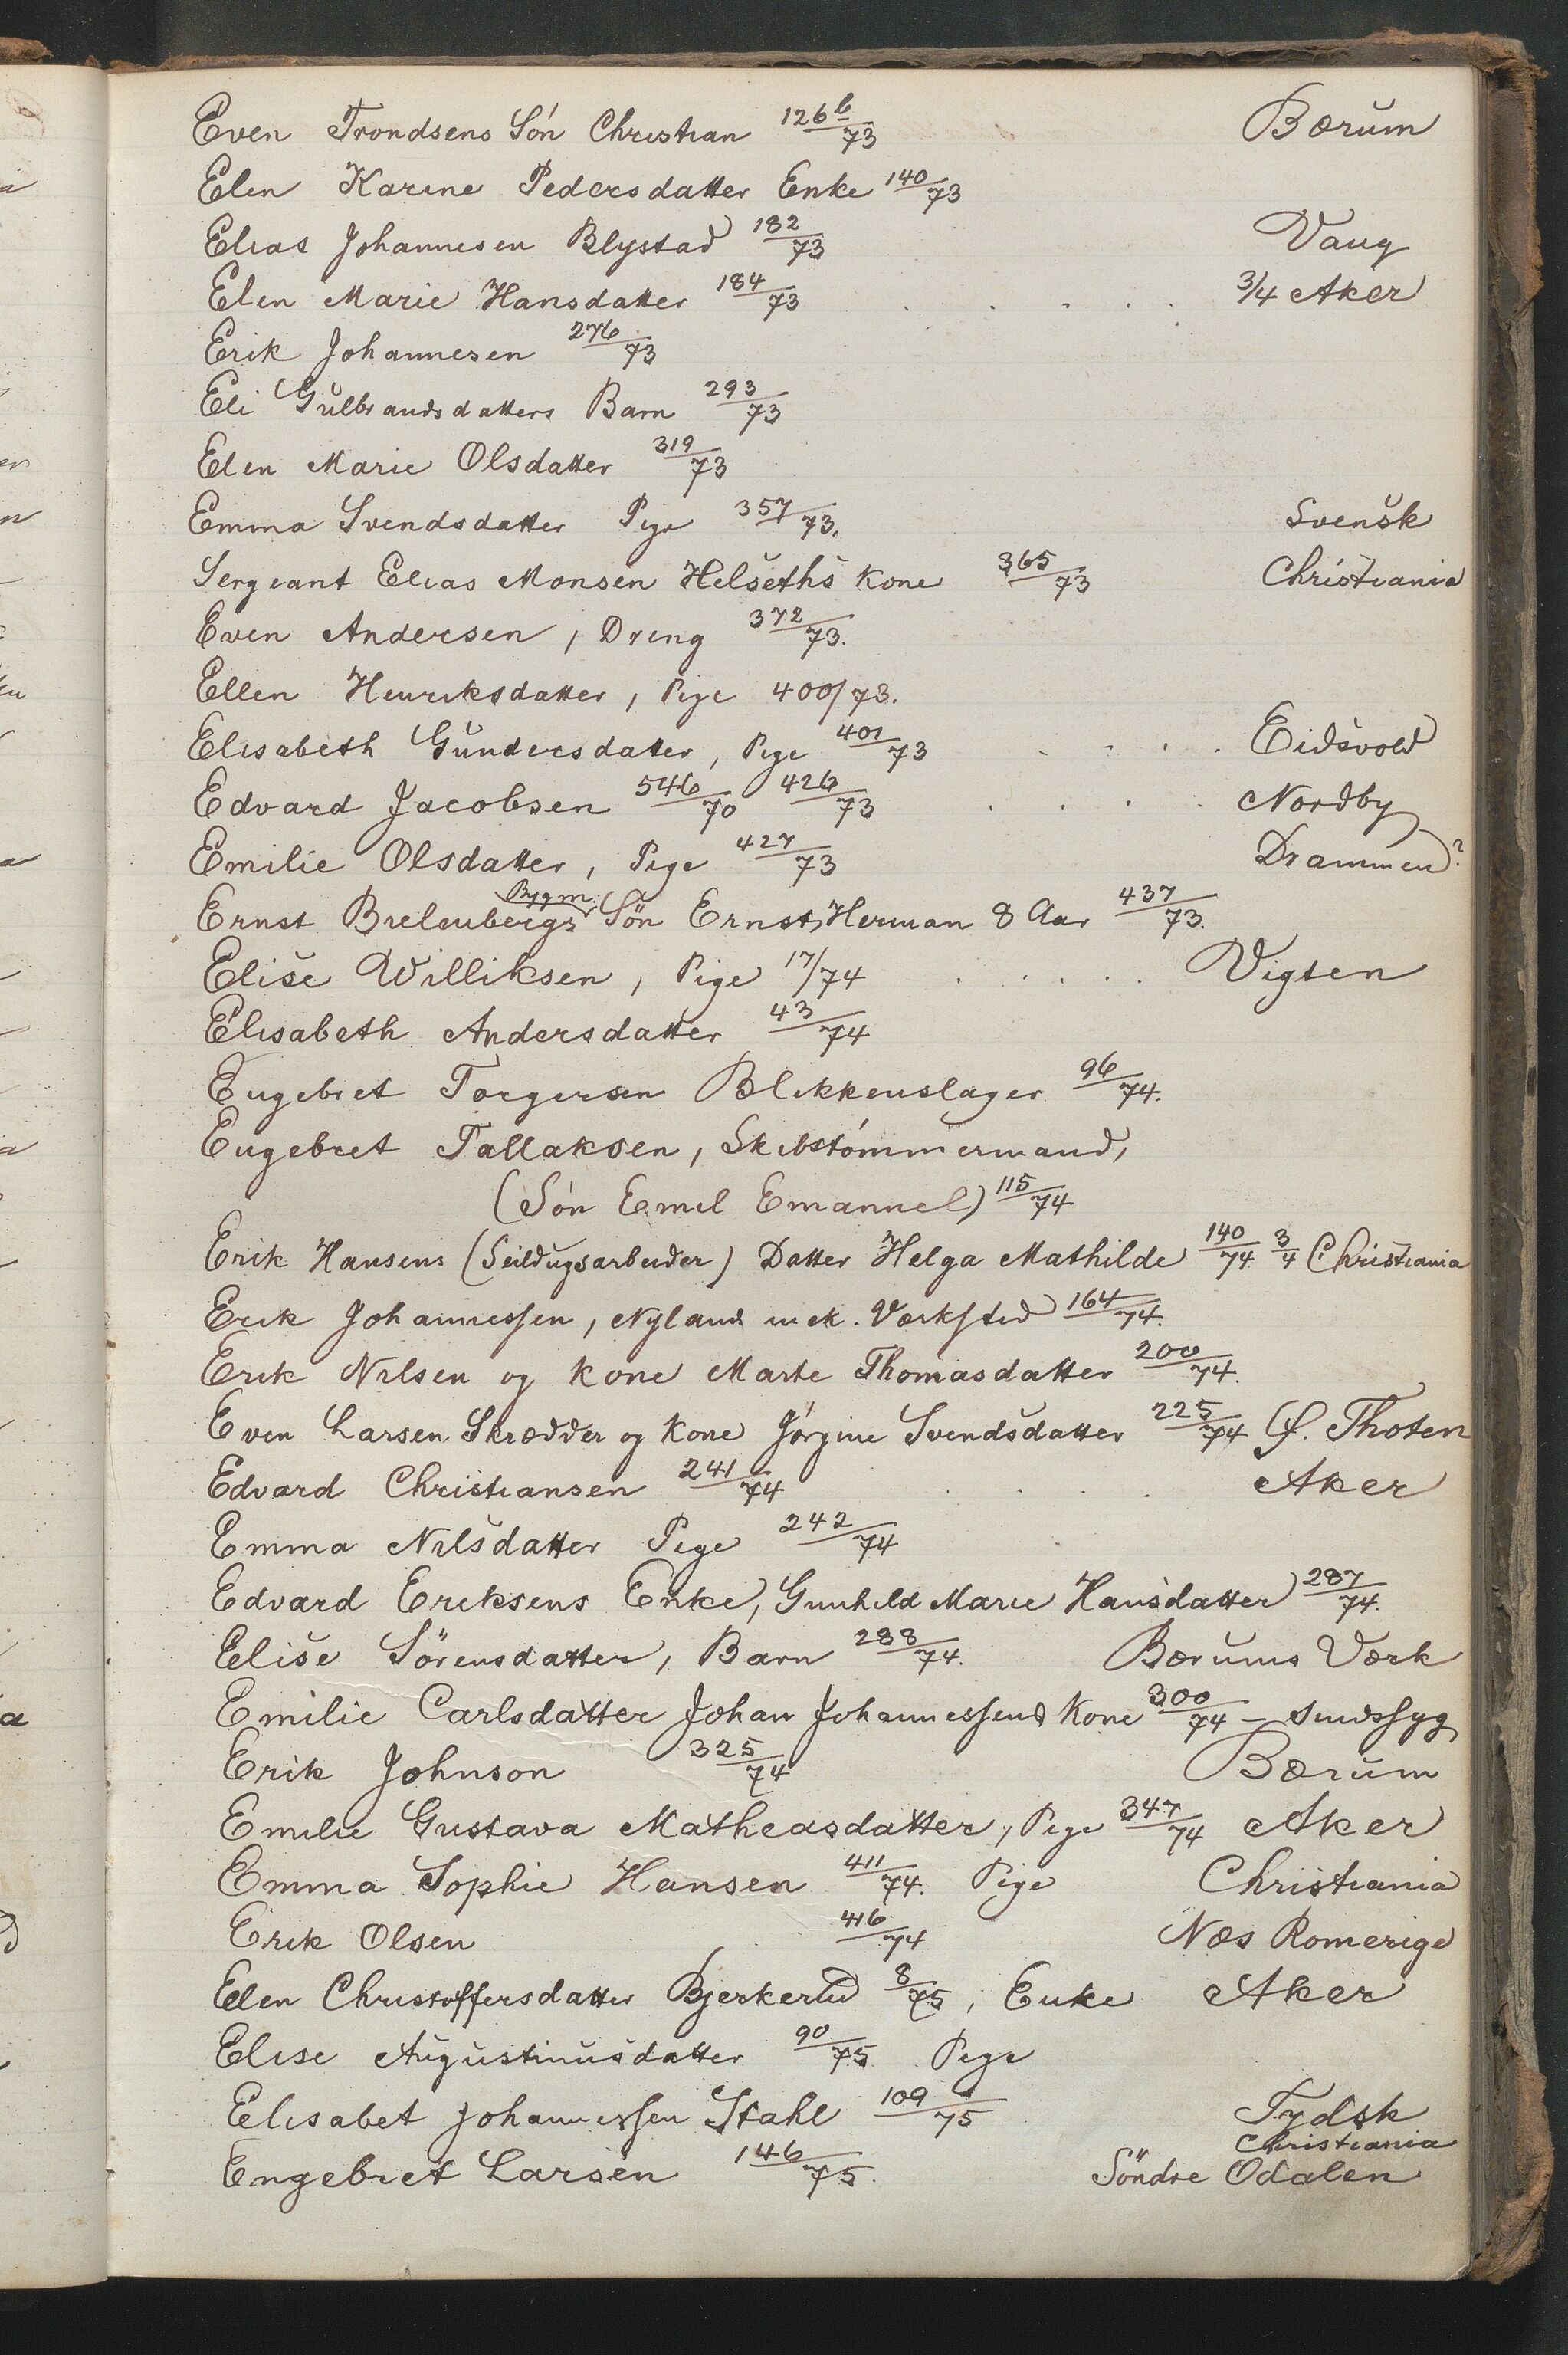 Even Trondsens Sön Christian 126b/73 Bærum
Elen Karine Pedersdatter Enke 140/73
Elias Johannesen Blystad 182/73 Vang
Elen Marie Hansdatter 184/73 . . . . 3/4 Aker
Erik Johannesen 276/73
Eli Gulbrandsdatters Barn 293/73
Elen Marie Olsdatter 319/73
Emma Svendsdatter Pige 357/73. Svensk
Sergeant Elias Monsen Helseths Kone 365/73 Christiania
Even Andersen, Dreng 372/73.
Ellen Henriksdatter, Pige 400/73.
Elisabeth Gundersdatter, Pige 401/73 . . . . Eidsvold
Edvard Jacobsen 546/70 426/73 . . . . Nordby
Emilie Olsdatter, Pige 427/73 Drammen?
Bygm.
Ernst Sön Ernst Herman 8 Aar 437/73.
Elise Williksen, Pige 17/74 . . . . . Vigten
Elisabeth Andersdatter 43/74
Engebret Torgersen Blikkenslager 96/74.
Engebret Tallaksen, Skibstömmermand,
(Sön Emil Emanuel) 115/74
Erik Hansens (Seildugsarbeider) Datter Helga Mathilde 140/74 3/4 Christiania
Erik Johannessen, Nyland mek. Værksted 164/74.
Erik Nilsen og Kone Marte Thomasdatter 200/74.
Even Larsen Skrædder og Kone Jörgine Svendsdatter 225/74 Ø. Thoten
Edvard Christiansen 241/74 . . . . Aker
Emma Nilsdatter Pige 242/74
Edvard Eriksens Enke, Gunhild Marie Hansdatter 287/74.
Elise Sörensdatter, Barn 288/74. Bærums Værk
Emilie Carlsdatter Johan Johannessens Kone 300/74 – sindssyg
Erik Johnson 325/74 Bærum
Emilie Gustava Matheasdatter, Pige 347/74 Aker
Emma Sophie Hansen 411/74. Pige Christiania
Erik Olsen 416/74 Næs Romerige
Elen Christoffersdatter Bjerkerud 8/75, Enke Aker
Elise Augustinusdatter 90/75 Pige
Elisabet Johannessen Stahl 109/75 Tydsk
Christiania
Engebret Larsen 146/75. Söndre Odalen